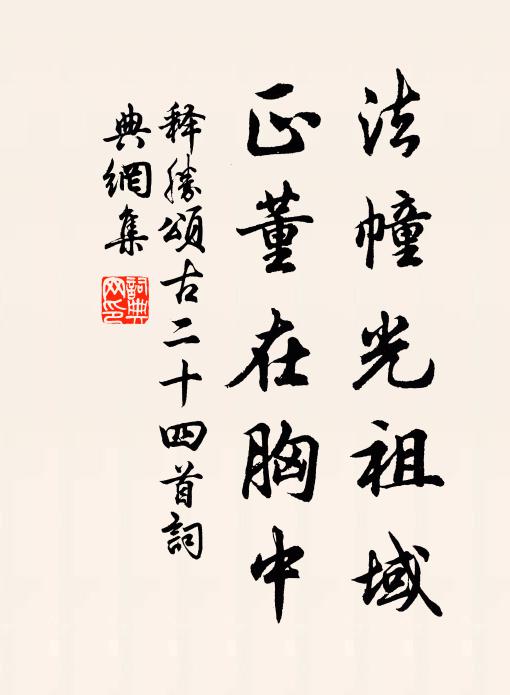 法幢光祖域
正董在胸中
释勝頌古二十四首詞
典網集
詞典
网印